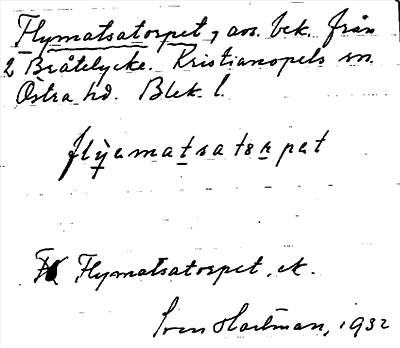 Flymatsatorpet, avs. bek. från
2 Bråtelycke. Kristianopels sn.
Östra hd. Blek. l.
flyamatsatorpat
Flymatsatorpet, ek.
Sven Hartman, 1932